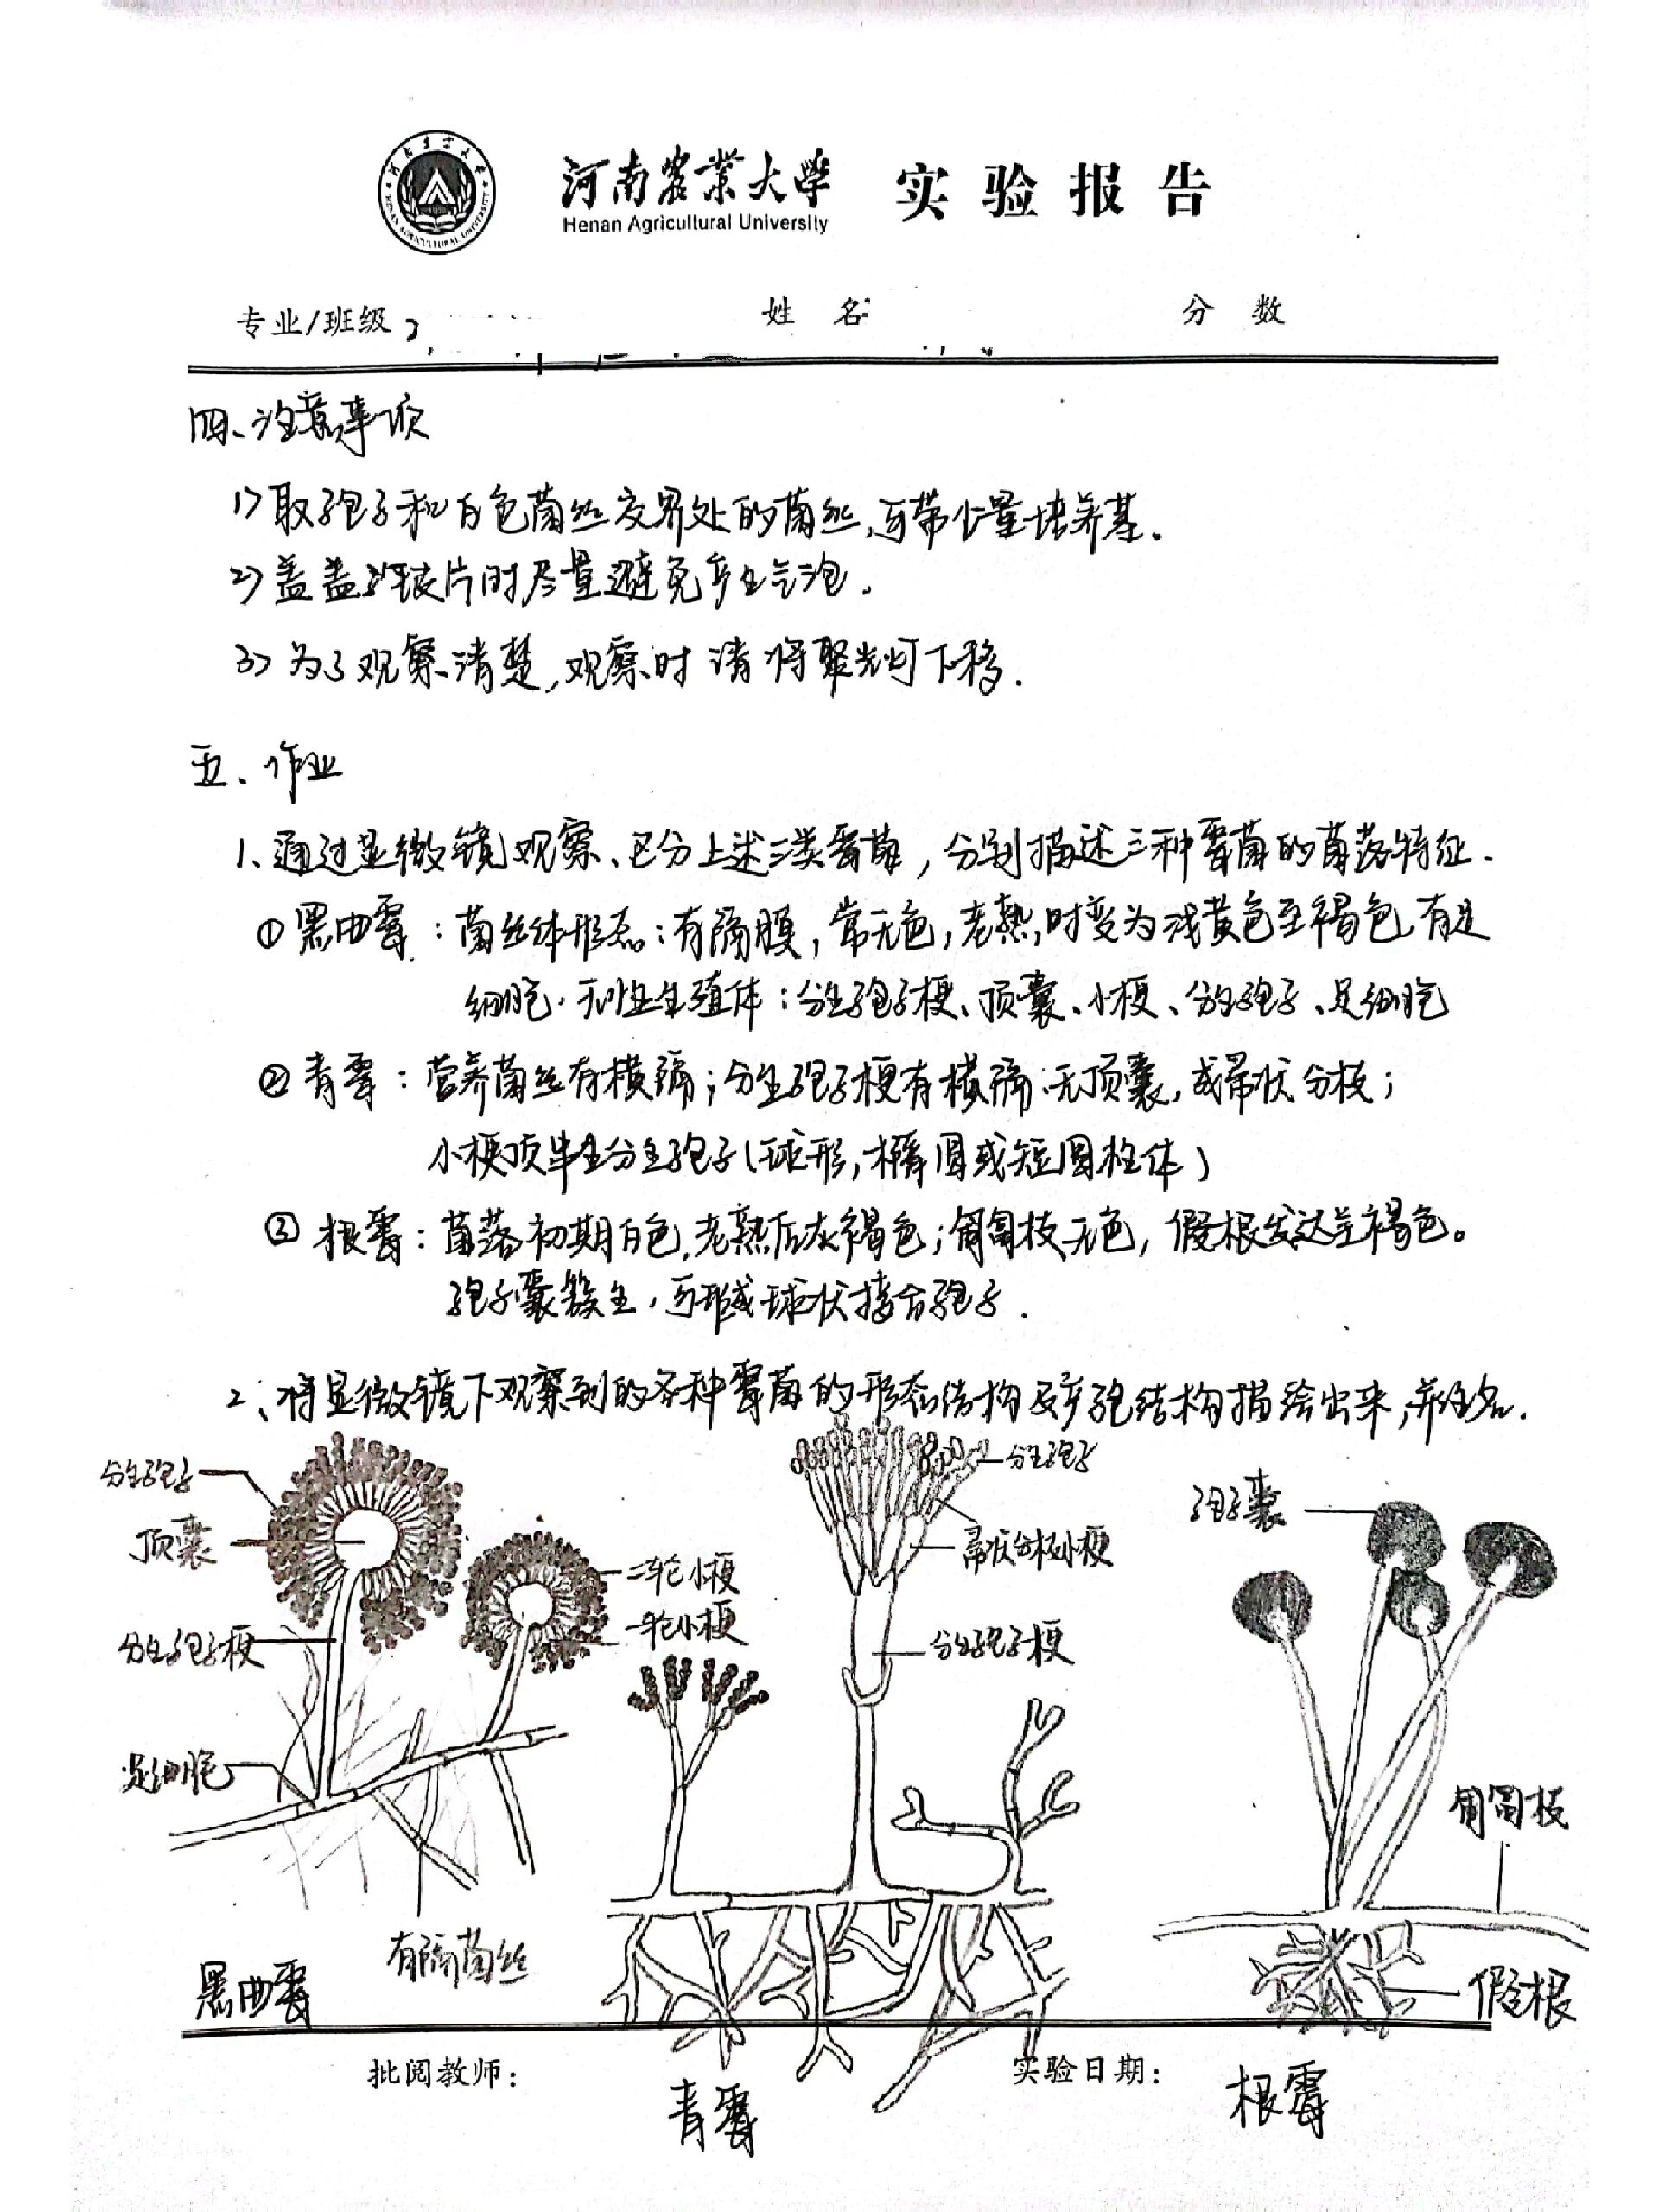 河南农业大学 实验报告
Henan Agricultural University
专业/班级 姓名: 分数
四、注意事项
1) 取孢子和白色菌丝交界处的菌丝,可带少量培养基.
2) 盖盖玻片时尽量避免产生气泡.
3) 为了观察清楚,观察时请将聚光灯下移.
五、作业
1、通过显微镜观察、区分上述三类霉菌,分别描述三种霉菌的菌落特征.
① 黑曲霉:菌丝体形态:有隔膜,常无色,老熟时变为浅黄色至褐色,有足
细胞.无性生殖体:分生孢子梗、顶囊、小梗、分生孢子、足细胞
② 青霉:营养菌丝有横隔;分生孢子梗有横隔.无顶囊,成帚状分枝;
小梗顶串生分生孢子(球形,椭圆或短圆柱体)
③ 根霉:菌落初期白色,老熟后灰褐色;匍匐枝无色,假根发达呈褐色。
孢子囊簇生,可形成球状接合孢子.
2、将显微镜下观察到的各种霉菌的形态结构及产孢结构描绘出来,并注名.
分生孢子
顶囊
分生孢子梗
足细胞
二轮小梗
一轮小梗
有隔菌丝
黑曲霉
分生孢子
帚状分枝小梗
分生孢子梗
青霉
孢子囊
匍匐枝
假根
根霉
批阅教师: 实验日期: